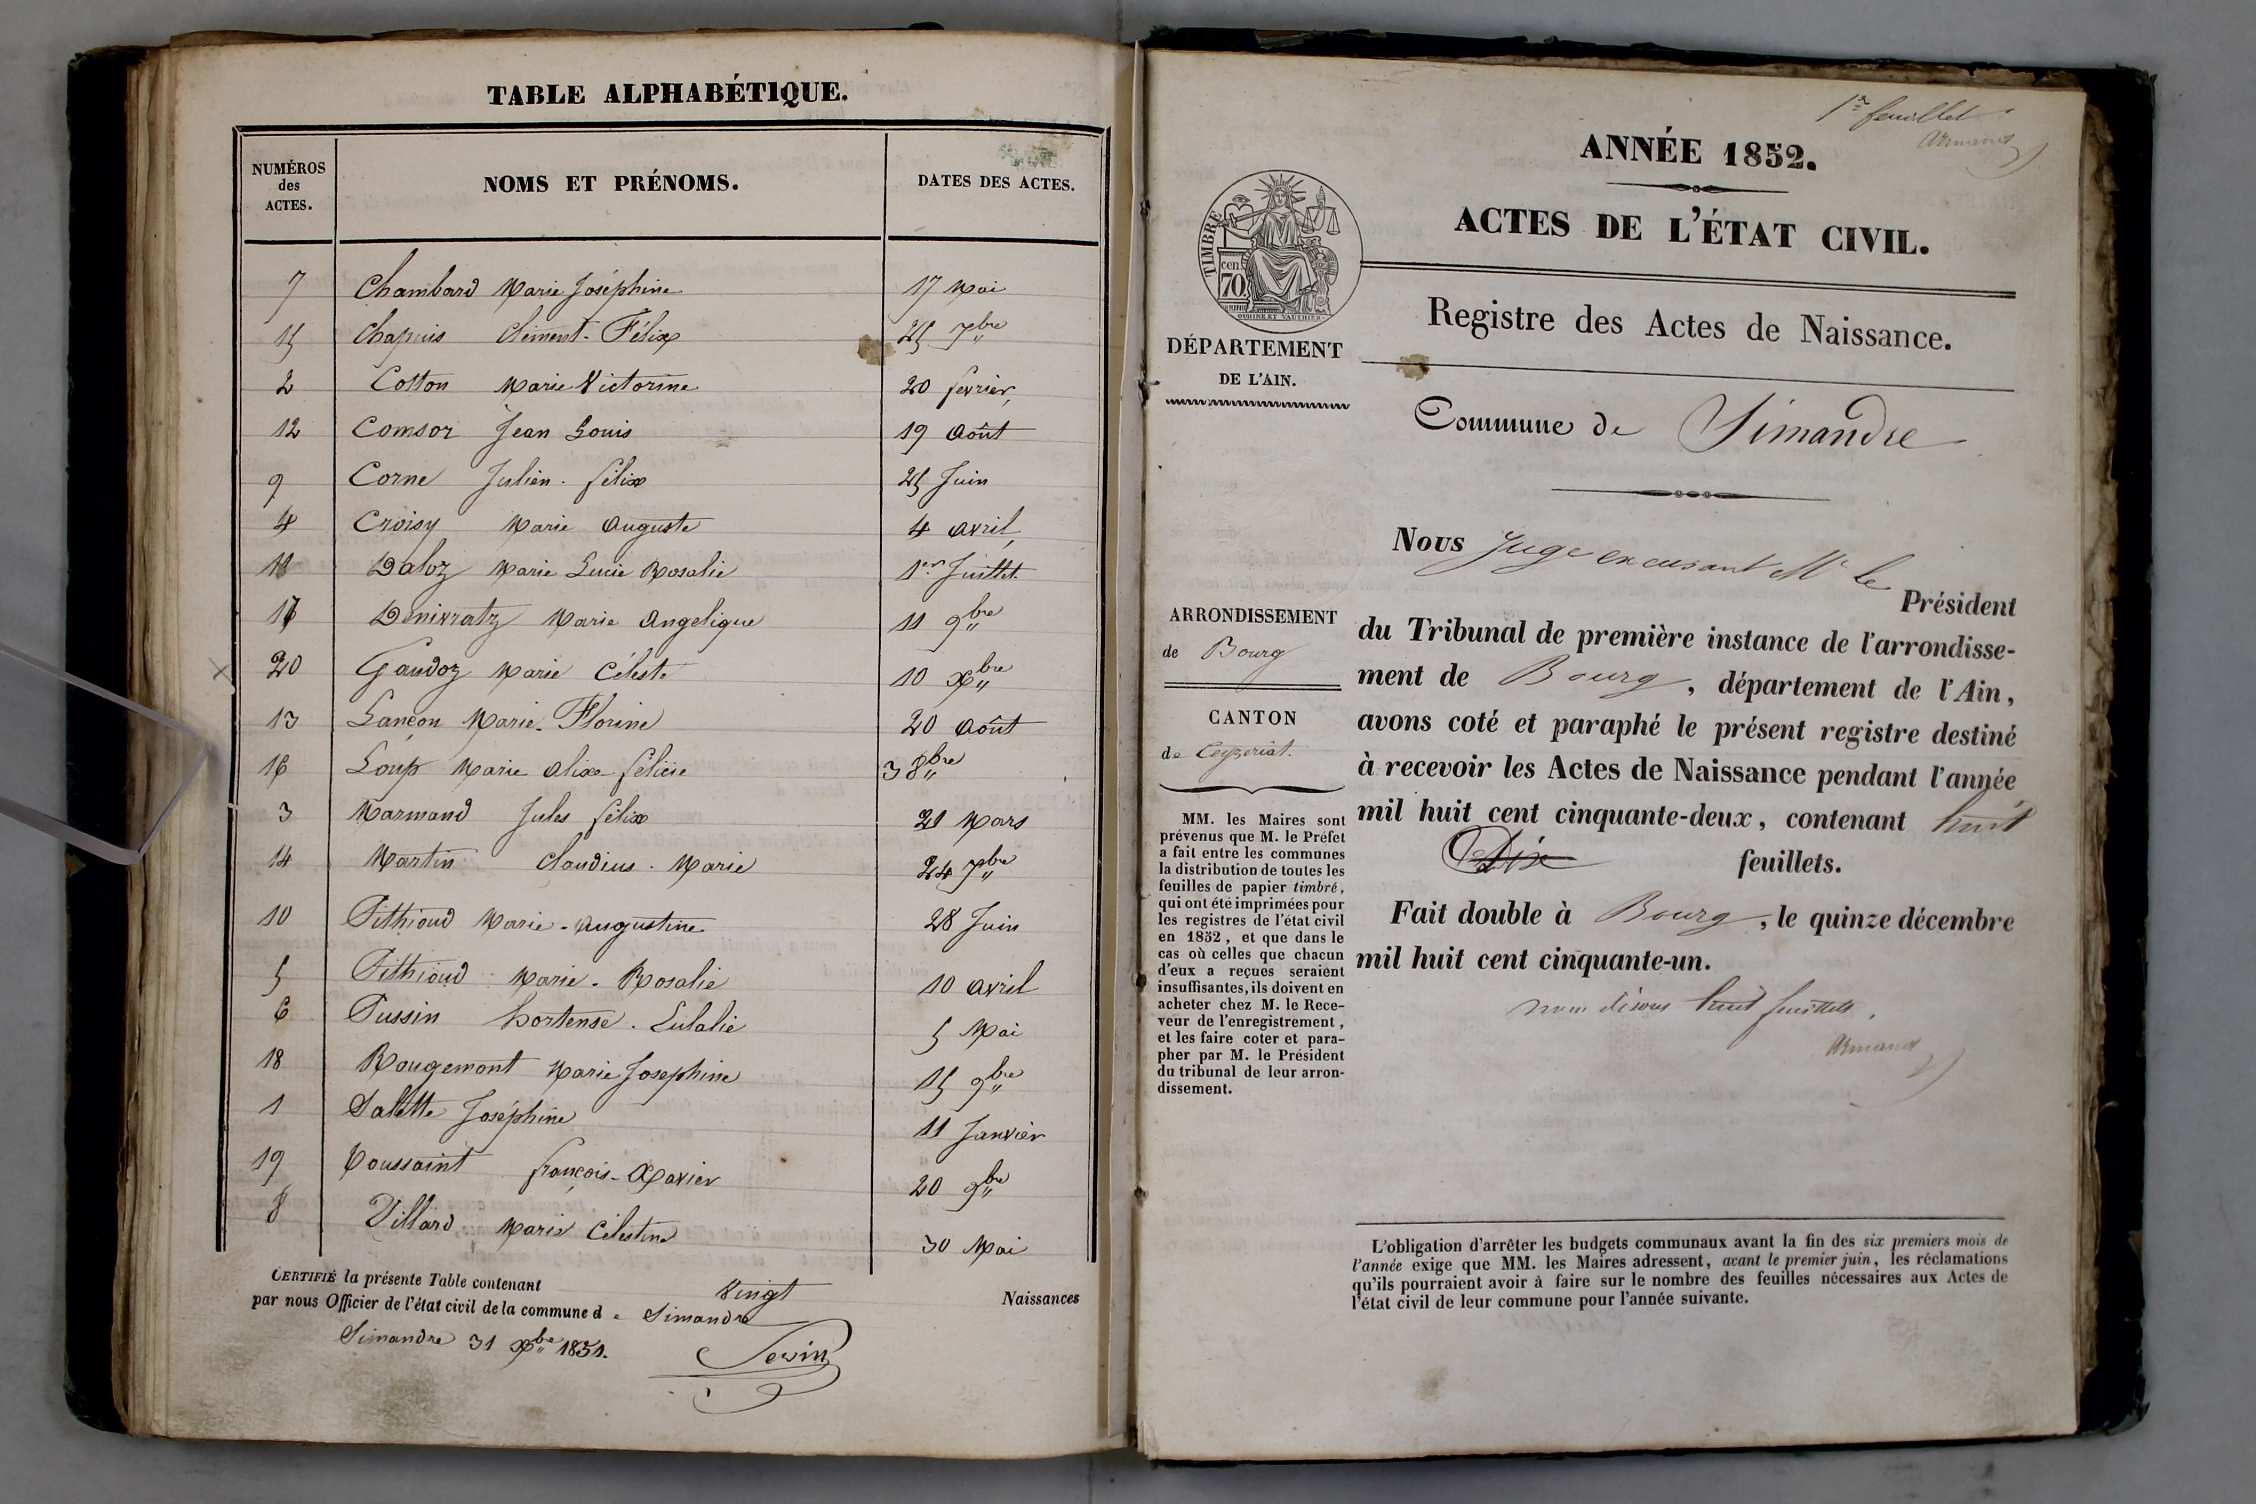 TABLE ALPHABÉTIQUE.
NUMÉROS des ACTES. NOMS ET PRÉNOMS. DATES DES ACTES.
7 Chambard Marie Joséphine 17 Mai
15 Chapuis Clément-Félix 25 7bre
2 Cotton Marie Victorine 20 février,
12 Comsor Jean Louis 19 Août
9 Corne Julien-félix 25 Juin
4 Croisy Marie Auguste 4 avril,
11 Daloz Marie Lucie Rosalie 1er Juillet
17 Marie Angelique 11 9bre
20 Gaudoz Marie Céleste 10 Xbre
13 Lançon Marie-Florine 20 Août
16 Loup Marie Alix félicie 3 8bre
3 Marmand Jules félix 21 Mars
14 Martin Claudius-Marie 24 7bre
10 Pithioud Marie-Augustine 28 Juin
5 Pithioud Marie-Rosalie 10 avril
6 Pussin hortense-Eulalie 5 Mai
18 Rougemont Marie Josephine 15 9bre
1 Salette Joséphine 11 Janvier
19 Toussaint françois-Xavier 20 9bre
8 Villard Marie Célestine 30 Mai
CERTIFIÉ la présente Table contenant Vingt Naissances
par nous Officier de l'état civil de la commune d e Simandre
Simandre 31 Xbre 1851.
1er feuillet
Armand
ANNÉE 1852.
ACTES DE L'ÉTAT CIVIL.
TIMBRE
cen.
70.
OUDINÉ ET VAUTHIER
Registre des Actes de Naissance.
DÉPARTEMENT
DE L'AIN.
Commune de Simandre
Nous Juge excusant Mr le
Président
du Tribunal de première instance de l'arrondisse-
ment de Bourg, département de l'Ain,
avons coté et paraphé le présent registre destiné
à recevoir les Actes de Naissance pendant l'année
mil huit cent cinquante-deux, contenant huit
Dix feuillets.
Fait double à Bourg, le quinze décembre
mil huit cent cinquante-un.
nous disons huit feuillets.
Armand
ARRONDISSEMENT
de Bourg
CANTON
de Ceyzeriat.
MM. les Maires sont
prévenus que M. le Préfet
a fait entre les communes
la distribution de toutes les
feuilles de papier timbré,
qui ont été imprimées pour
les registres de l'état civil
en 1852, et que dans le
cas où celles que chacun
d'eux a reçues seraient
insuffisantes, ils doivent en
acheter chez M. le Rece-
veur de l'enregistrement,
et les faire coter et para-
pher par M. le Président
du tribunal de leur arron-
dissement.
L'obligation d'arrêter les budgets communaux avant la fin des six premiers mois de
l'année exige que MM. les Maires adressent, avant le premier juin, les réclamations
qu'ils pourraient avoir à faire sur le nombre des feuilles nécessaires aux Actes de
l'état civil de leur commune pour l'année suivante.